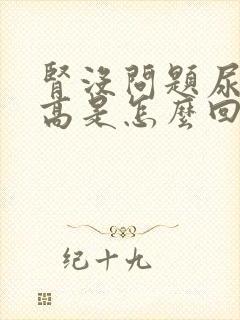 腎沒問題尿
高是怎麼回
纪十九